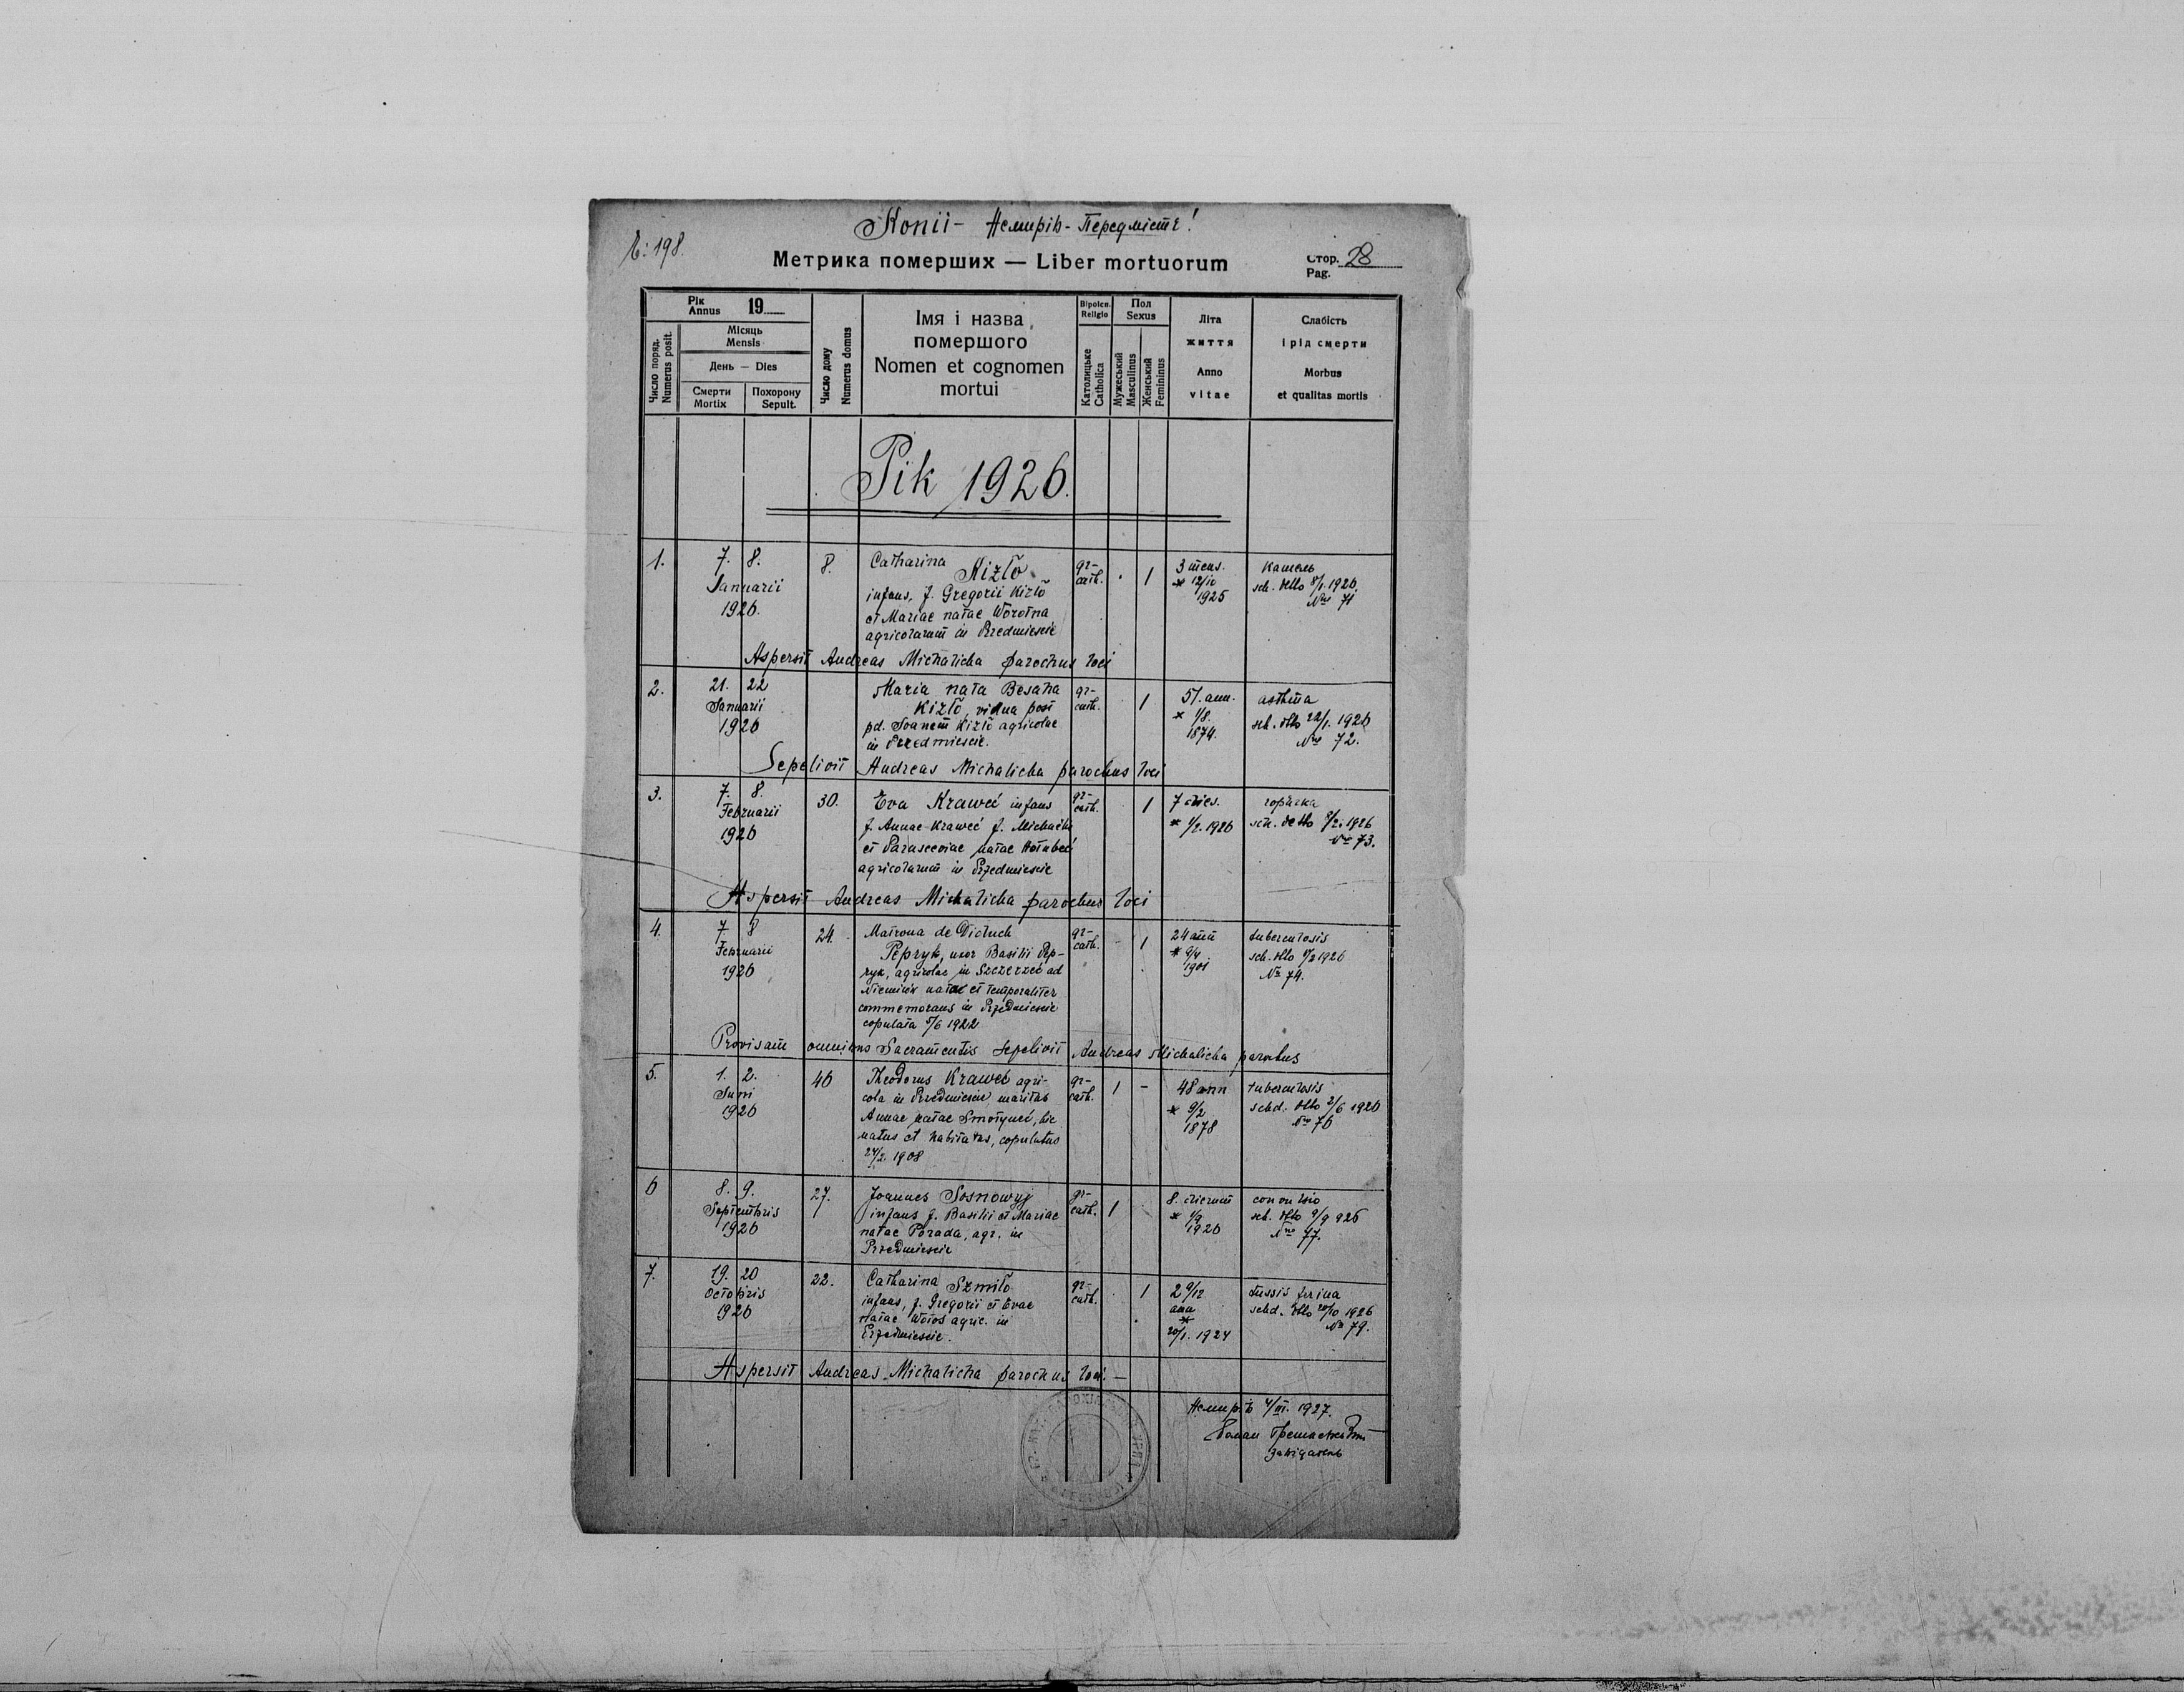 Копії - Немирів - Передмістє!
Ч: 198.
Метрика померших — Liber mortuorum
Стор. 28
Pag.
Рік
Annus 19
Число поряд.
Numerus posit.
Місяць
Mensis
День — Dies
Смерти
Mortix
Похорону
Sepult.
Число дому
Numerus domus
Імя і назва
померлого
Nomen et cognomen
mortui
Віроісп.
Religio
Католицьке
Catholica
Пол
Sexus
Мужеський
Masculinus
Женський
Femininus
Літа
життя
Anno
vitae
Слабість
і рід смерти
Morbus
et qualitas mortis
Рік 1926.
1. 7. 8. Januarii 1926. 8.
Catharina Kizło
infans, f. Gregorii Kizło
et Mariae natae Worotna
agricolarum in Przedmieście
gr-cath. 1
3 mens. * 12/10 1925
кашель
sch. dtto 8/1. 1926.
Nro 71
Aspersit Andreas Michalicha parochus loci
2. 21. 22 Januarii 1926
Maria nata Besaha
Kizło, vidua post
pd. Joanem Kizło agricolae
in Przedmieście.
gr-cath. 1
51. ann. * 1/8. 1874.
asthma
sch. dtto 22/1. 1926
Nro 72.
Sepelivit Andreas Michalicha parochus loci
3. 7. 8. Februarii 1926 30.
Eva Kraweć infans
f. Annae Kraweć f. Michaelis
et Parasceviae natae Hołubeć
agricolarum in Przedmieście
gr-cath. 1
7 dies. * 1/2. 1926
горячка
sch. detto 8/2. 1926
Nro 73.
Aspersit Andreas Michalicha parochus loci
4. 7. 8 Februarii 1926 24.
Matrona de Dictuch
Pepryk, uxor Basilii Pep-
ryk, agricolae in Szczerzec ad
Niemirów natae et temporaliter
commemorans in Przedmieście
copulata 5/6 1922
gr-cath. 1
24 ann * 9/4 1901
tuberculosis
sch. dtto 8/2 1926
Nro 74.
Provisam omnibus Sacramentis sepelivit Andreas Michalicha parochus
5. 1. 2. Juni 1926 46
Theodorus Kraweć agri-
cola in Przedmieście maritus
Annae natae Smotyneć, hic
natus et habitatus, copulatus
24/2. 1908
gr-cath. 1 -
48 ann * 9/2 1878
tuberculosis
schd. dtto 2/6 1926
Nro 76
6 8. 9. Septembris 1926 27.
Joannes Sosnowyj
infans f. Basilii et Mariae
natae Porada, agr. in
Przedmieście
gr-cath. 1
8. dierum * 1/9 1926
convulsio
sch. dtto 9/9 926
Nro 77.
7. 19. 20 Octobris 1926 22.
Catharina Szmiło
infans, f. Gregorii et Evae
natae Wołos agric. in
Przedmieście.
gr-cath. 1
2 9/12 ann * 20/1. 1924
tussis ferina
schd. dtto 20/10 1926
Nro 79.
Aspersit Andreas Michalicha parochus loci. —
Немирів 4/III. 1927.
завідатель